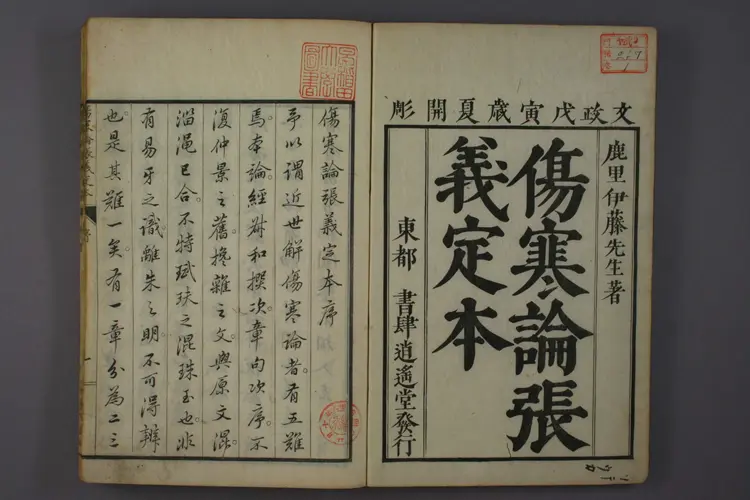 文政戊寅歳夏開彫
鹿里伊藤先生著
傷寒論張
義定本
東都 書肆逍遙堂發行
早稲田大學圖書
傷寒論張義定本序
予以謂近世解傷寒論者。有五難
焉。本論經叔和撰次章句次序。不
復仲景之舊。攙雜之文。與原文混。
淄澠已合。不特珷玞之混珠玉也。非
有易牙之識。離朱之明。不可得辨
也。是其難一矣。有一章分為二三